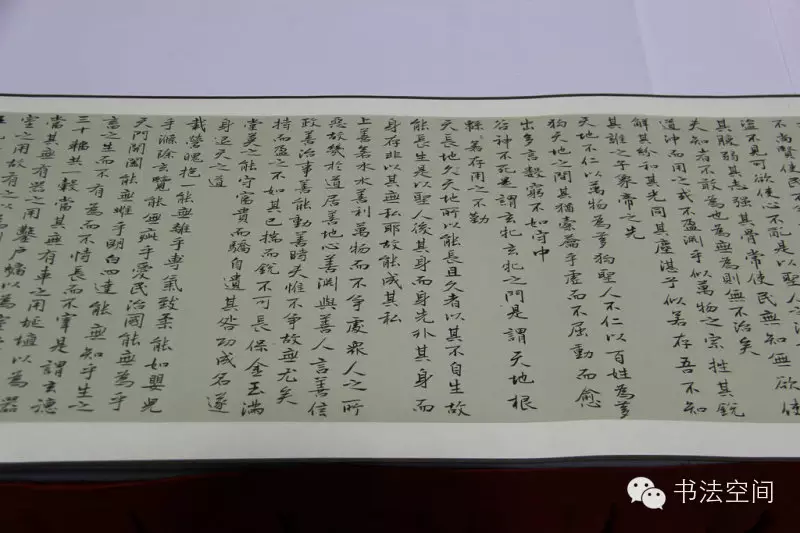 不尚賢使民不
盜不見可欲使心不亂是以聖人之治
其腹弱其志強其骨常使民無知無欲使
夫知者不敢為也為無為則無不治矣
道沖而用之或不盈淵乎似萬物之宗挫其銳
解其紛和其光同其塵湛乎似若存吾不知
其誰之子象帝之先
天地不仁以萬物為芻狗聖人不仁以百姓為芻
狗天地之間其猶橐籥乎虛而不屈動而愈
出多言數窮不如守中
谷神不死是謂玄牝玄牝之門是謂天地根
綿若存用之不勤
天長地久天地所以能長且久者以其不自生故
能長生是以聖人後其身而身先外其身而
身存非以其無私耶故能成其私
上善若水水善利萬物而不爭處眾人之所
惡故幾於道居善地心善淵與善人言善信
政善治事善能動善時夫惟不爭故無尤矣
持而盈之不如其已揣而銳不可長保金玉滿
堂莫之能守富貴而驕自遺其咎功成名遂
身退天之道
載營魄抱一能無離乎專氣致柔能如嬰兒
乎滌除玄覽能無疵乎愛民治國能無為乎
天門開闔能無雌乎明白四達能無知乎生之
畜之生而不有為而不恃長而不宰是謂玄德
三十輻共一轂當其無有車之用埏埴以為
當其無有器之用鑿戶牖以為室
室之用故有之以為利
以為器
书法空间